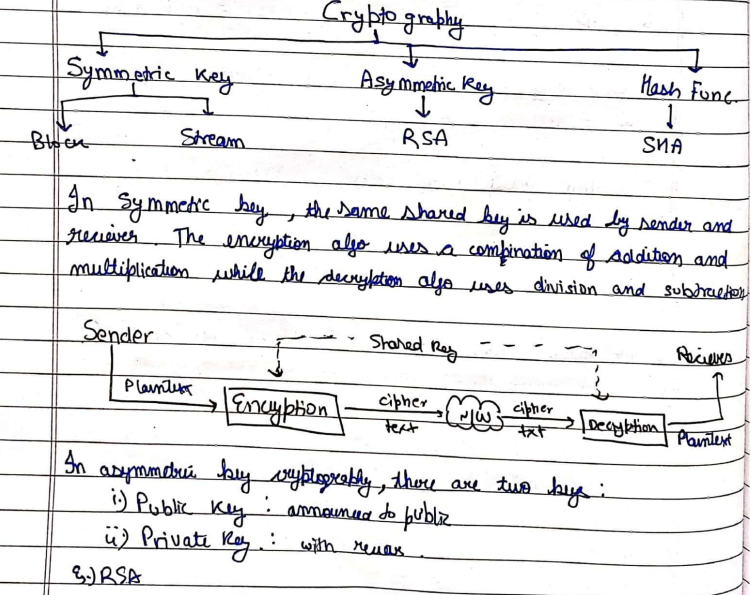 Cryptography
Symmetric Key Asymmetric Key Hash Func.
Block Stream RSA SHA
In Symmetric key, the same shared key is used by sender and
reciever. The encryption algo uses a combination of addition and
multiplication while the decryption algo uses division and substraction
Sender Shared Key Reciever
Plaintext Encryption cipher text N/W cipher txt Decryption Plaintext
In asymmetric key cryptography, there are two keys :
i.) Public Key : announced to public
ii) Private Key. : with
RSA